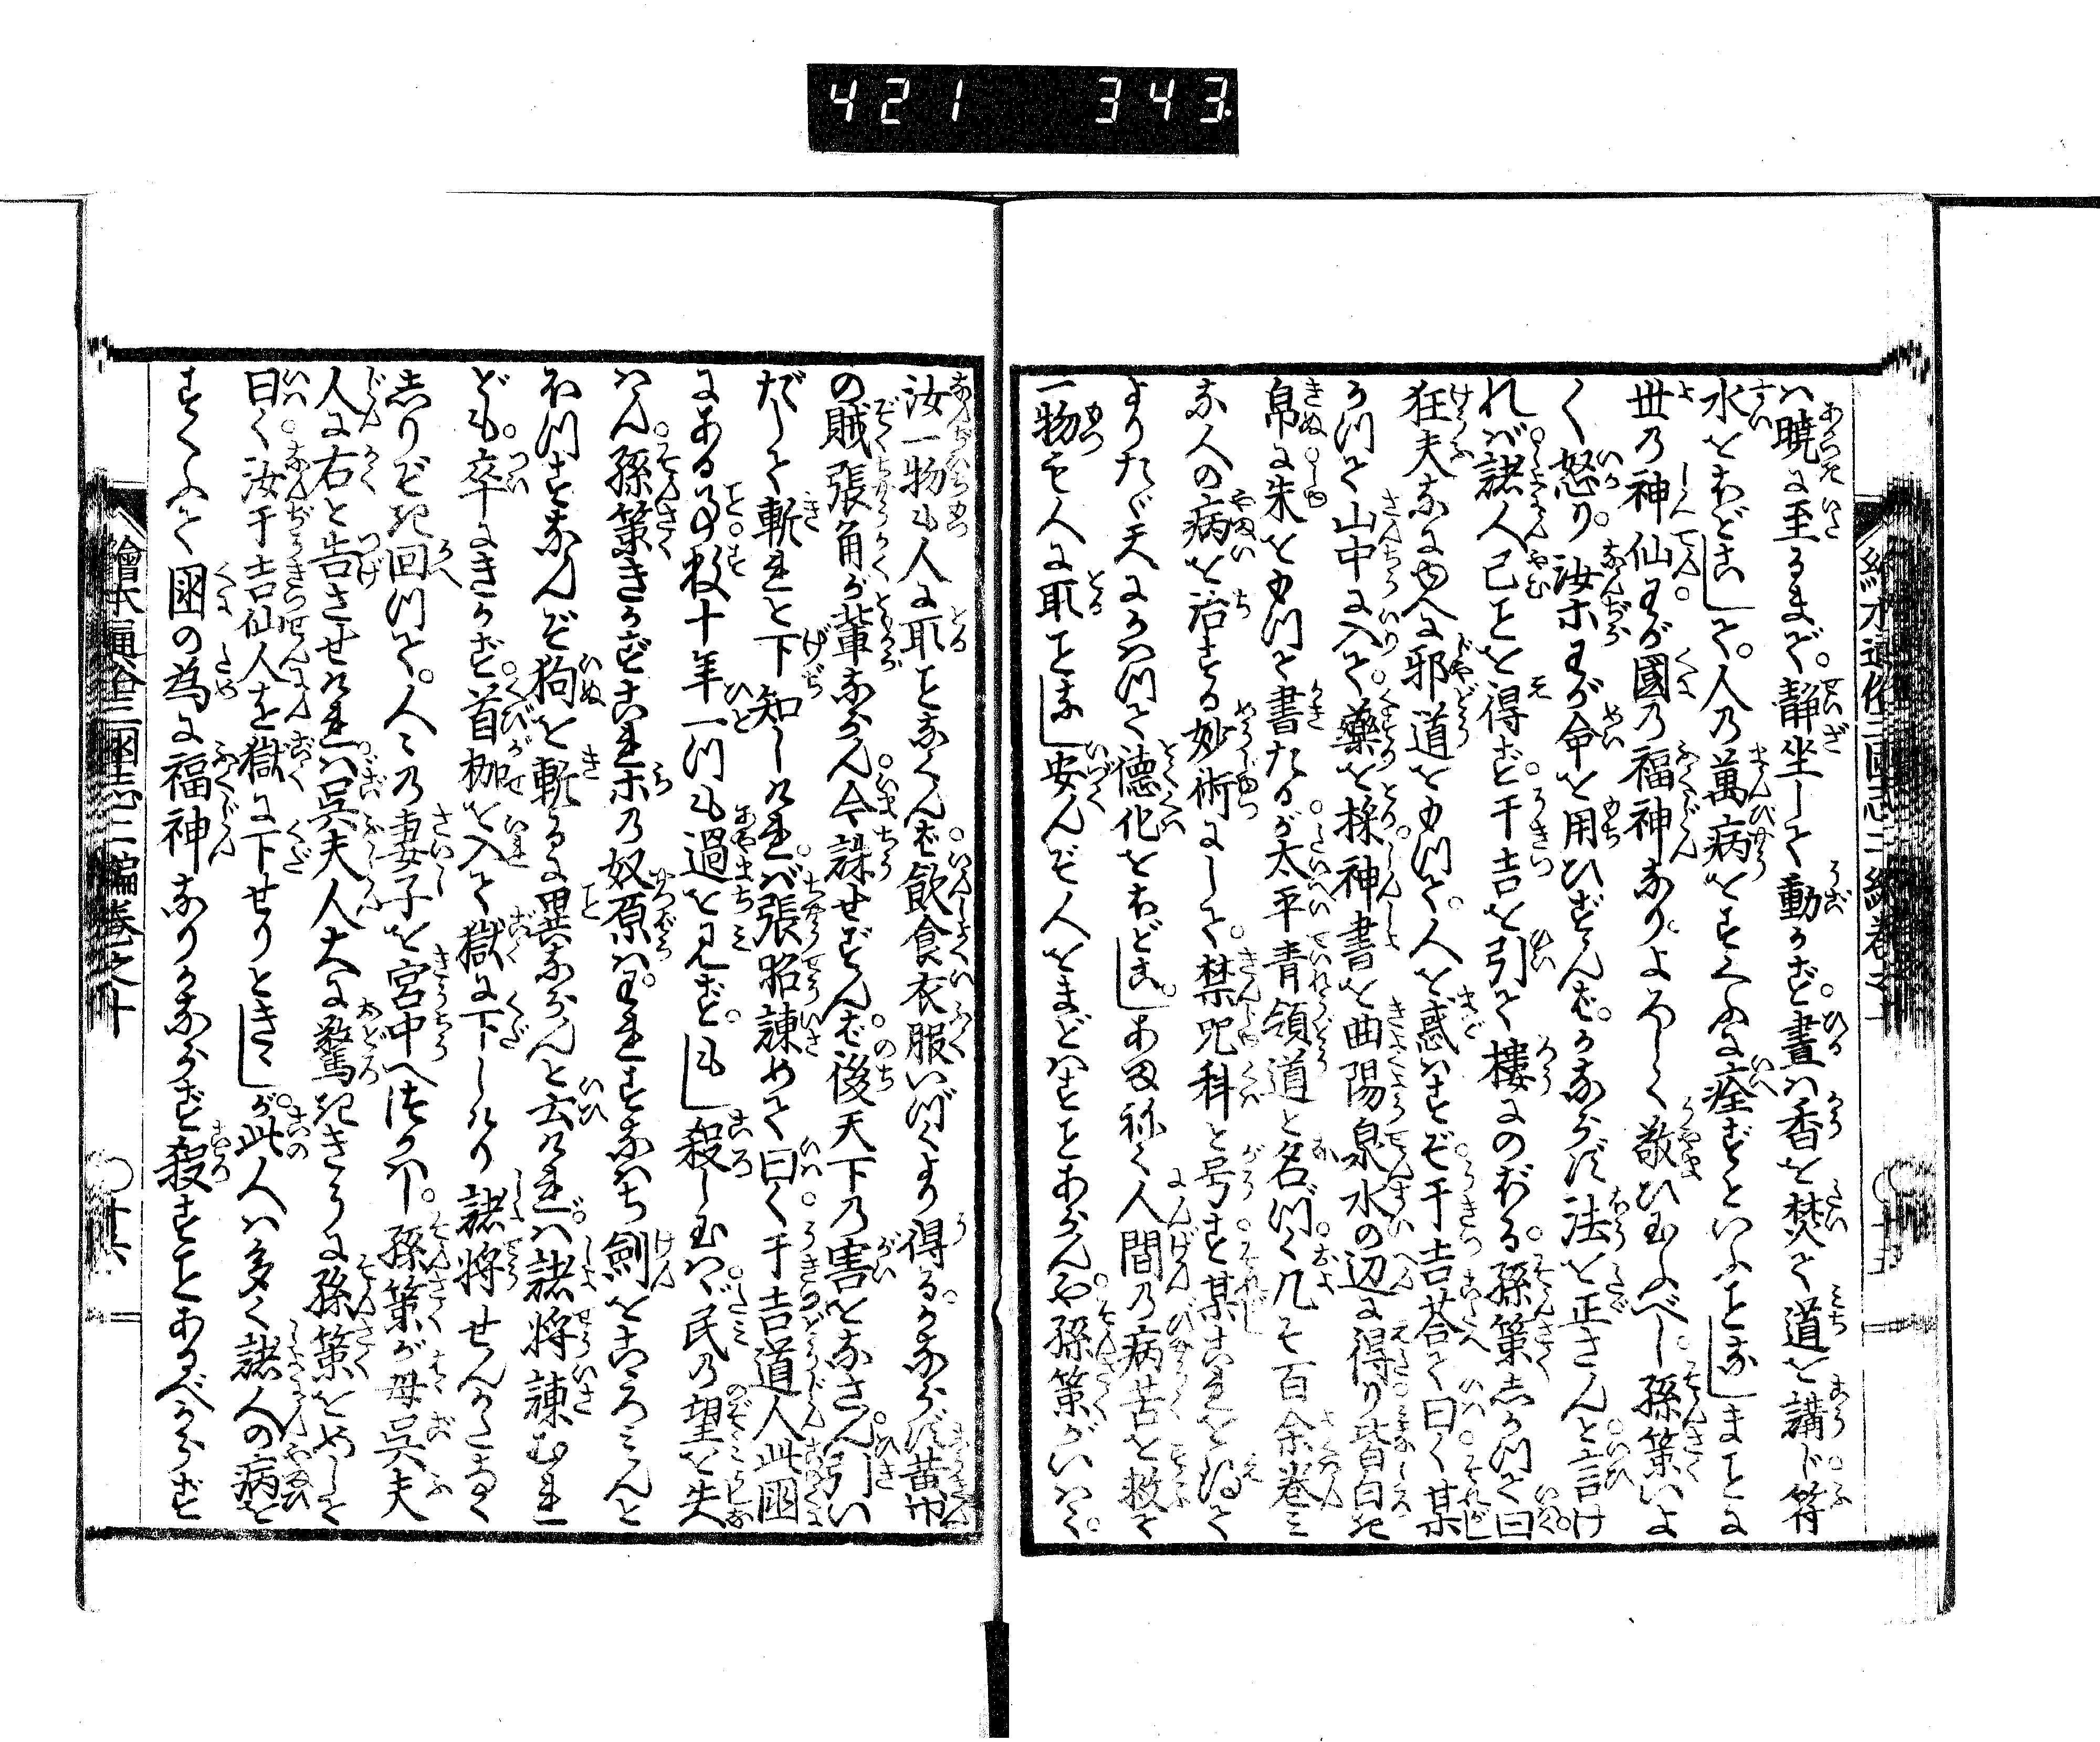 421 343
繪本通俗三國志二編巻之十
ハ暁に至るまで。静坐して動かず。晝ハ香を焚て道を講じ符
水をほどこして。人の萬病をすくふに痊ずといふことなしまことに
世の神仙わが國の福神なりよろしく敬ひ玉ふべし孫策いよ
く怒り。汝ホわが命を用ひずんバ。かならず法を正さんと言け
れバ諸人已ことを得ず于吉を引て樓にのぼる。孫策しかつて曰
狂夫なにゆへに邪道をもつて。人を惑ハすぞ于吉荅て曰く某
かつて山中に入て。藥を採神書を曲陽泉水の辺に得り皆白き
帛に朱をもつて書たるが太平青領道と名づく凡そ百余巻ミ
な人の病を治する妙術にして。禁咒科と号す某これを得て
よりたゞ天にかハつて德化をほどこし。あまねく人間の病苦を救て
一物も人に取ことなし安んぞ人をまどハすことあらんや孫策がいハく。
汝一物も人に取ことなくんば飲食衣服いづくより得る。かならず黄巾
の賊張角が輩ならん今誅せずんば後天下の害をなさん引い
だして斬れと下知しけれバ張昭諫めて曰く于吉道人此國
にある事数十年一つも過を見ず。もし殺し玉ハゞ民の望を失
ハん孫策きかずこれホの奴原ハ。われすなハち劍をこゝろミんと
ほつすなんぞ狗を斬るに異ならんと云けれバ諸将諫むれ
ども。卒にきかず首枷を入て獄に下しけり諸将せんかたなく
しりぞき回つて。人々の妻子を宮中へ遣ハし。孫策が母呉夫
人に右と告させけれバ呉夫人大に驚きさうに孫策をめして
曰く汝于吉仙人を獄に下せりときく。此人ハ多く諸人の病を
すくふて國の為に福神なりかならず殺すことあるべからず
繪本通俗三國志二編巻之十
十六